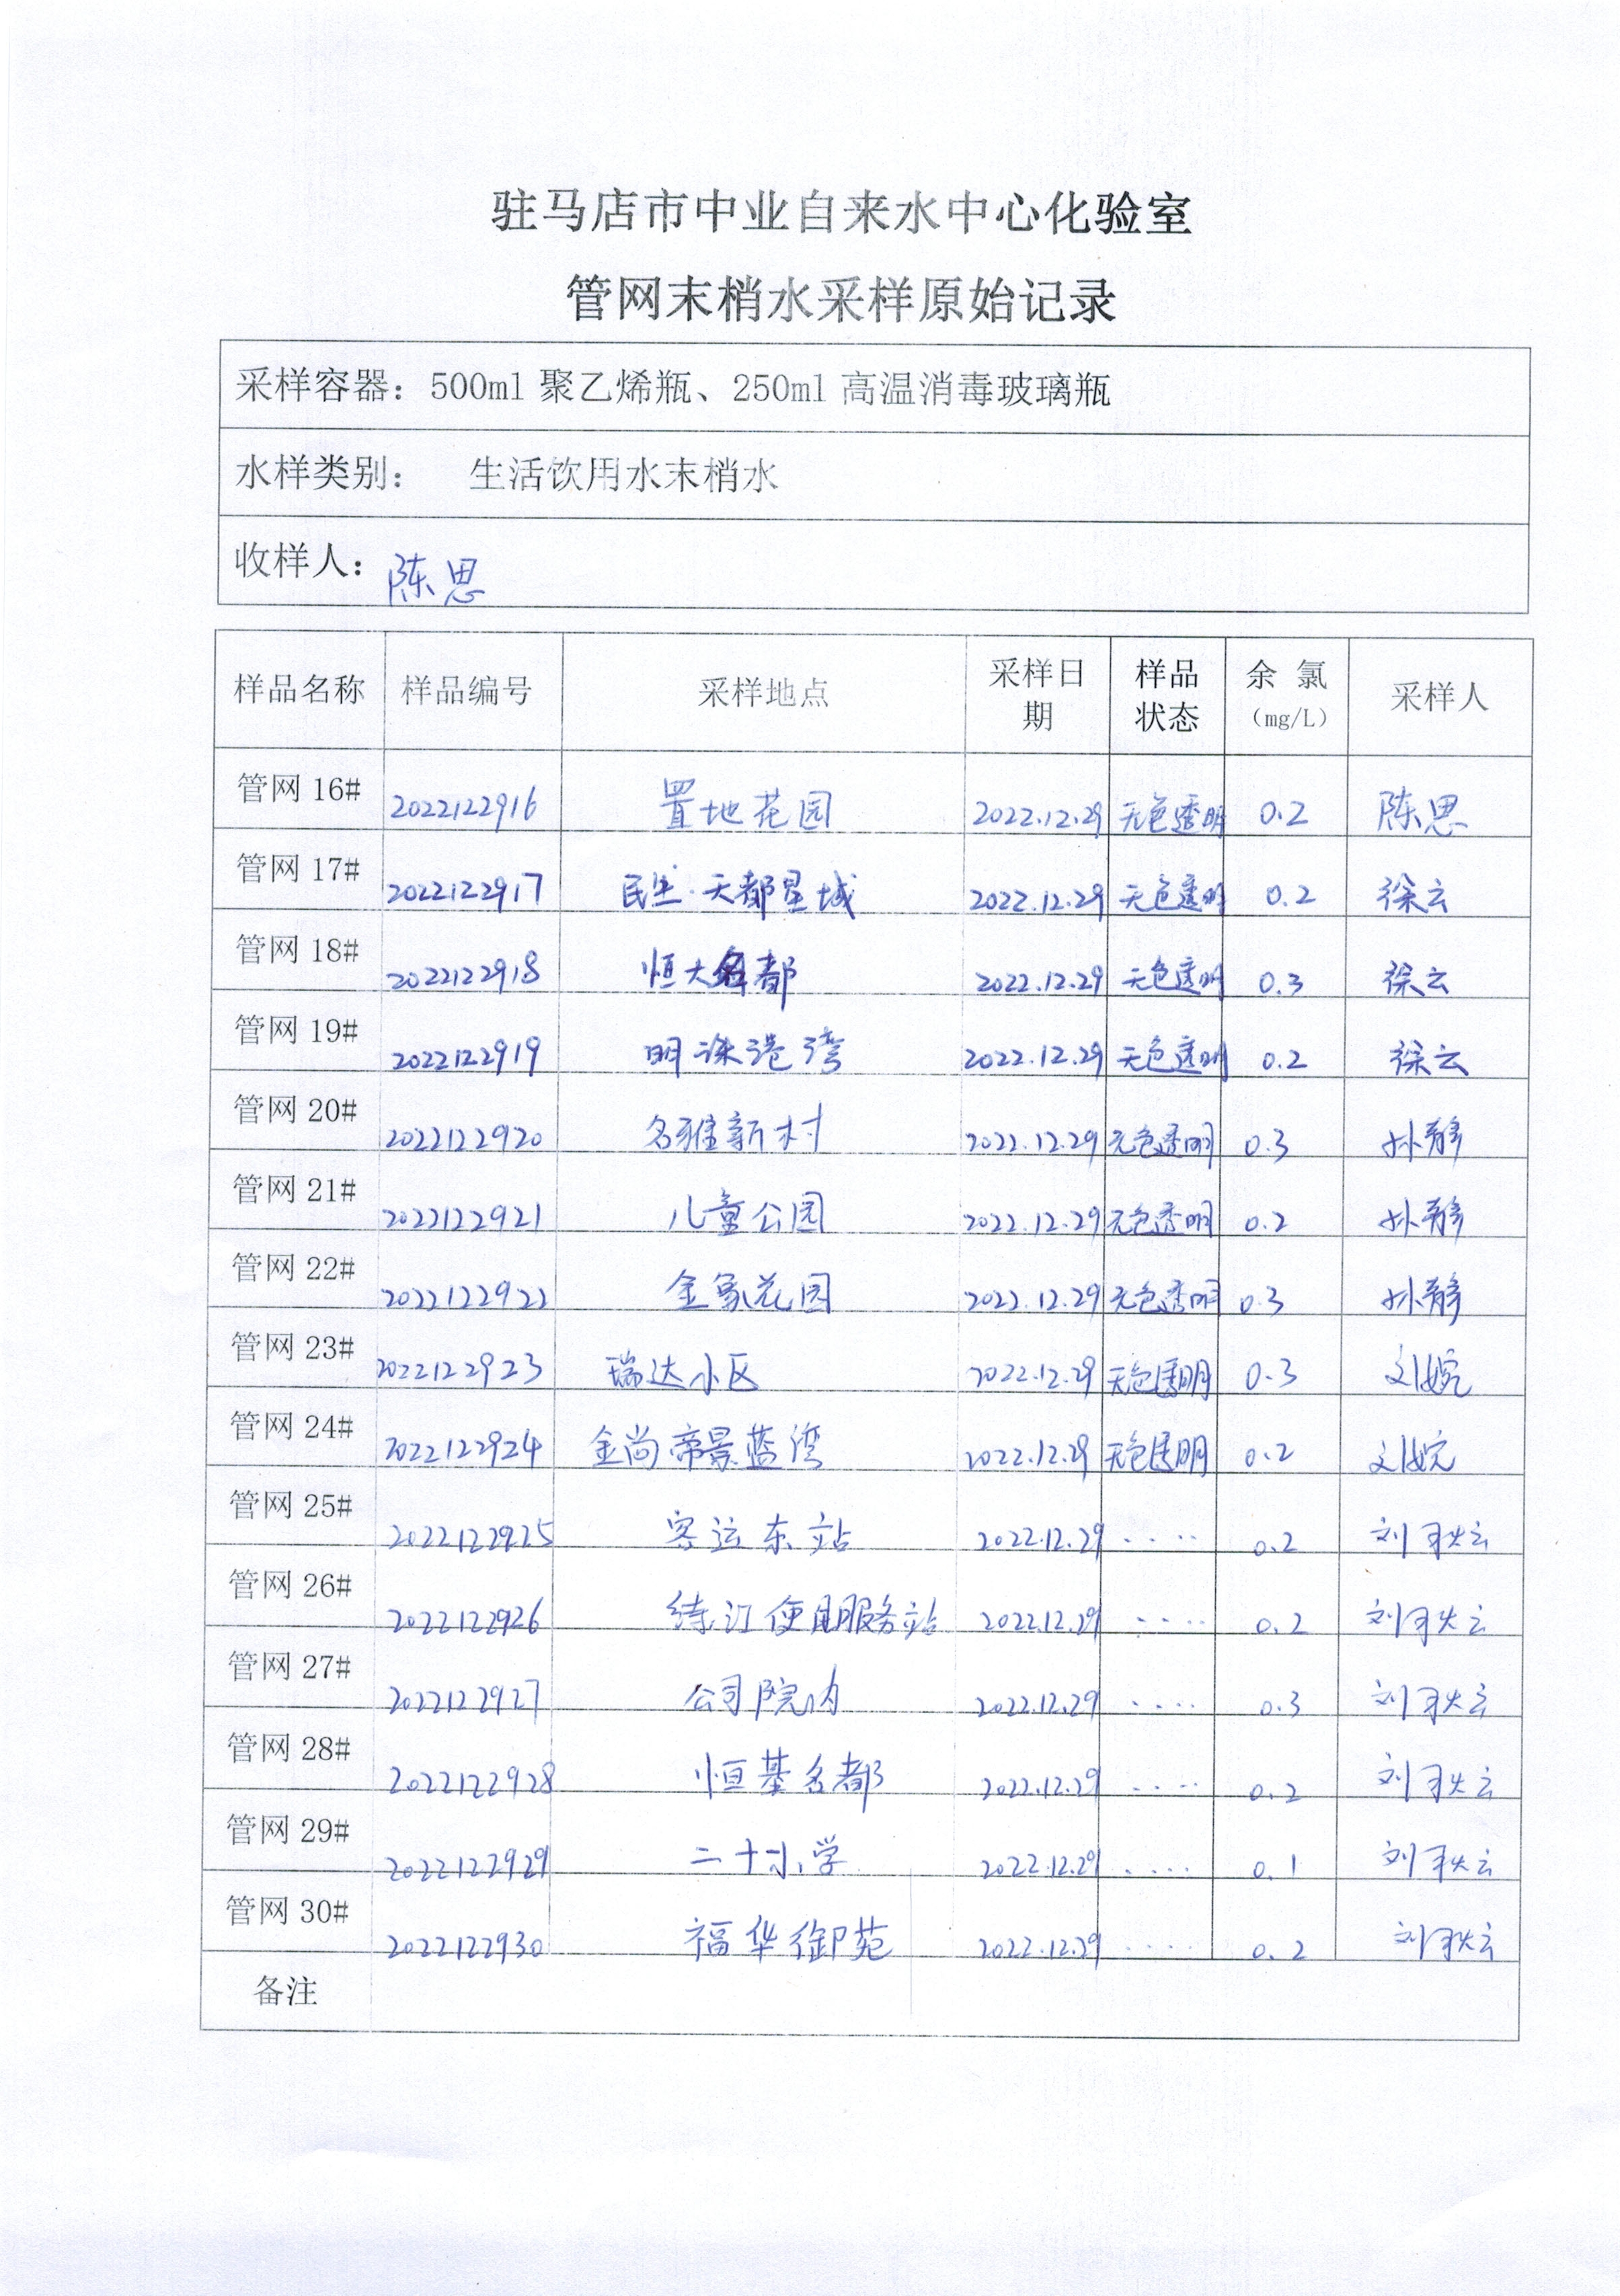 驻马店市中业自来水中心化验室
管网末梢水采样原始记录
采样容器：500ml 聚乙烯瓶、250ml 高温消毒玻璃瓶
水样类别： 生活饮用水末梢水
收样人：陈思
样品名称 样品编号 采样地点 采样日期 样品状态 余 氯（mg/L） 采样人
管网 16# 2022122916 置地花园 2022.12.29 无色透明 0.2 陈思
管网 17# 2022122917 民生·天都星城 2022.12.29 无色透明 0.2 徐云
管网 18# 2022122918 恒大名都 2022.12.29 无色透明 0.3 徐云
管网 19# 2022122919 明珠港湾 2022.12.29 无色透明 0.2 徐云
管网 20# 2022122920 名雅新村 2022.12.29 无色透明 0.3 孙静
管网 21# 2022122921 儿童公园 2022.12.29 无色透明 0.2 孙静
管网 22# 2022122922 金象花园 2022.12.29 无色透明 0.3 孙静
管网 23# 2022122923 瑞达小区 2022.12.29 无色透明 0.3 刘婉
管网 24# 2022122924 金尚帝景蓝湾 2022.12.29 无色透明 0.2 刘婉
管网 25# 2022122925 客运东站 2022.12.29 ···· 0.2 刘秋云
管网 26# 2022122926 练江便民服务站 2022.12.29 ···· 0.2 刘秋云
管网 27# 2022122927 公司院内 2022.12.29 ···· 0.3 刘秋云
管网 28# 2022122928 恒基名都 2022.12.29 ···· 0.2 刘秋云
管网 29# 2022122929 二十小学 2022.12.29 ···· 0.1 刘秋云
管网 30# 2022122930 福华御苑 2022.12.29 ···· 0.2 刘秋云
备注